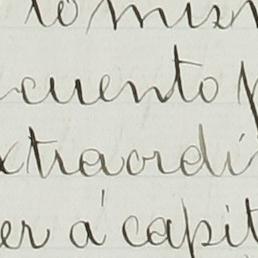 lo mis
cuento p
xtraordi
er á capit